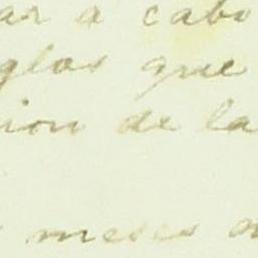 ar a cabo
glas que
ion de la
meses